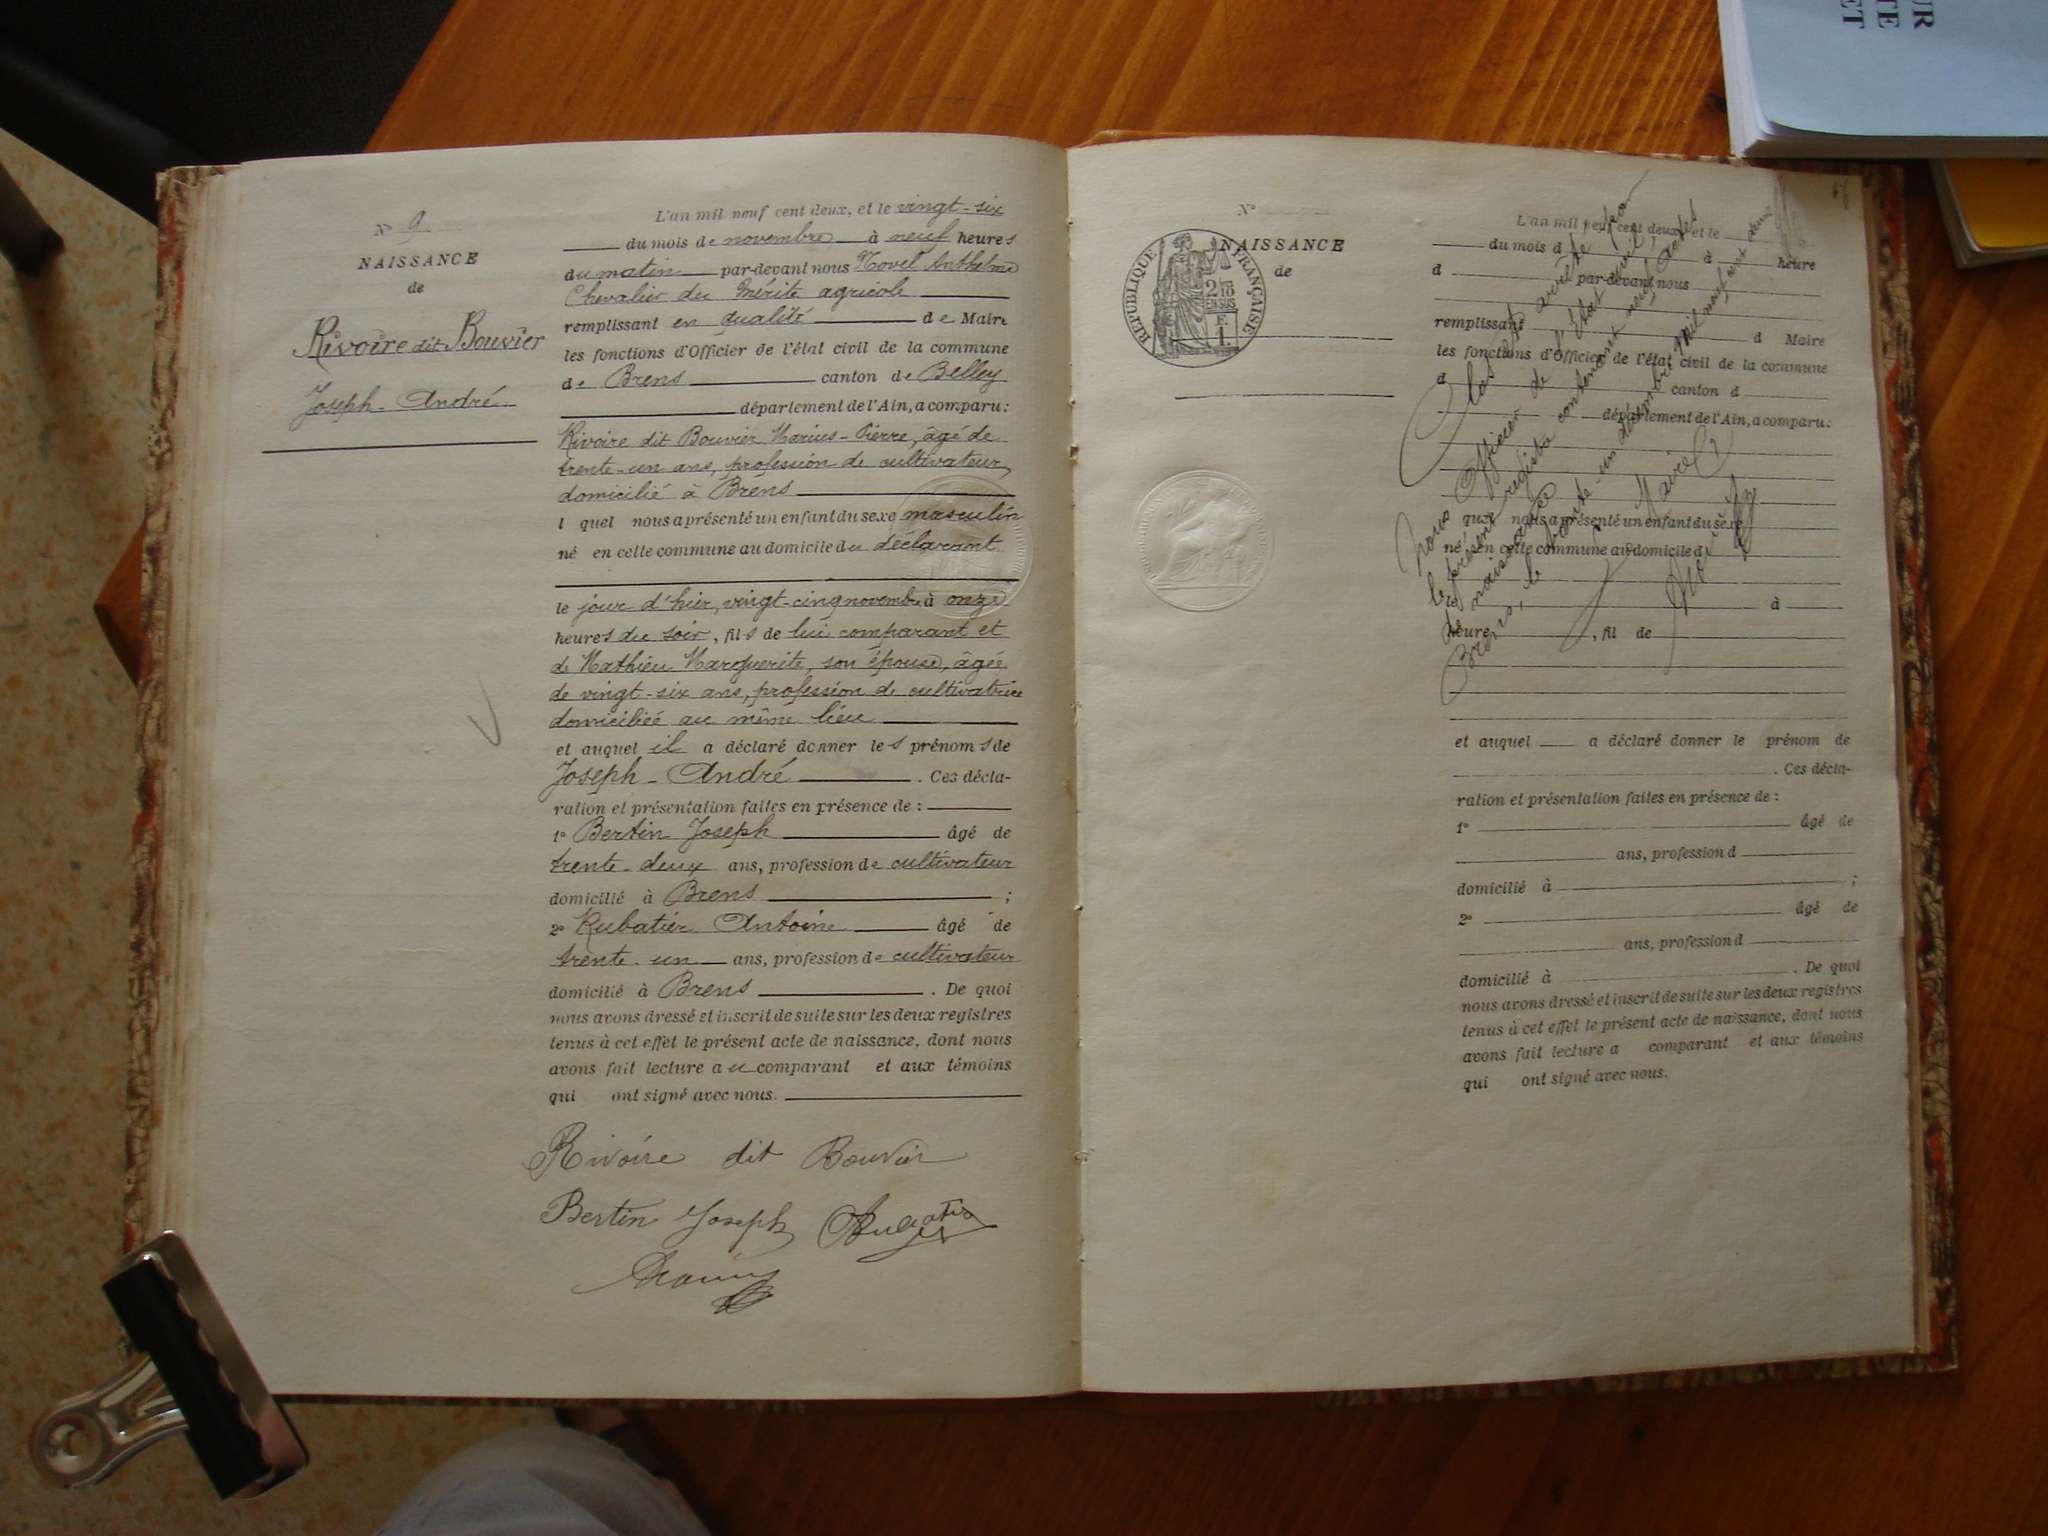 N° 9
NAISSANCE
de
Rivoire dit Bouvier
Joseph-André
L'an mil neuf cent deux, et le vingt-six
du mois de novembre à neuf heures
du matin par-devant nous Novel Anthelme
Chevalier du Mérite agricole
remplissant en qualité de Maire
les fonctions d'Officier de l'état civil de la commune
de Brens canton de Belley
département de l'Ain, a comparu:
Rivoire dit Bouvier Marius-Pierre, âgé de
trente-un ans, profession de cultivateur,
domicilié à Brens
l quel nous a présenté un enfant du sexe masculin
né en cette commune au domicile du déclarant
le jour d'hier, vingt-cinq novembre à onze
heures du soir, fils de lui comparant et
de Mathieu Marguerite, son épouse, âgée
de vingt-six ans, profession de cultivatrice
domiciliée au même lieu
et auquel il a déclaré donner les prénoms de
Joseph-André. Ces décla-
ration et présentation faites en présence de :
1° Bertin Joseph âgé de
trente-deux ans, profession de cultivateur
domicilié à Brens ;
2° Rubatier Antoine âgé de
trente-un ans, profession de cultivateur
domicilié à Brens. De quoi
nous avons dressé et inscrit de suite sur les deux registres
tenus à cet effet le présent acte de naissance, dont nous
avons fait lecture au comparant et aux témoins
qui ont signé avec nous.
Rivoire dit Bouvier
Bertin Joseph Rubatier
N°
NAISSANCE
de
RÉPUBLIQUE FRANÇAISE
2/10 EN SUS
F.
1
L'an mil neuf cent deux, et le
du mois d à heure
d par-devant nous
remplissant d Maire
les fonctions d'Officier de l'état civil de la commune
d canton d
département de l'Ain, a comparu:
quel nous a présenté un enfant du sexe
né en cette commune au domicile d
le à
heure , fil de
et auquel a déclaré donner le prénom de
. Ces décla-
ration et présentation faites en présence de :
1° âgé de
ans, profession d
domicilié à ;
2° âgé de
ans, profession d
domicilié à . De quoi
nous avons dressé et inscrit de suite sur les deux registres
tenus à cet effet le présent acte de naissance, dont nous
avons fait lecture a comparant et aux témoins
qui ont signé avec nous.
Clos et arrêté par
nous Officier de l'État civil,
le présent registre contenant neuf actes
de naissance
Brens, le trente-un décembre mil neuf cent deux
Maire
UR
TE
ET